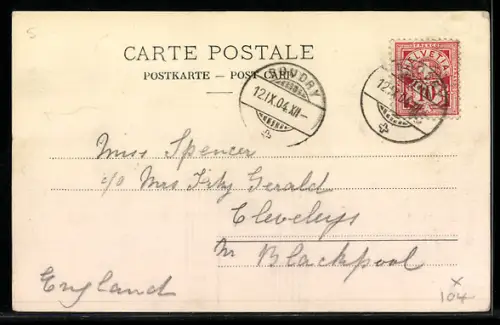 5
CARTE POSTALE
POSTKARTE — POST CARD
BOUDRY
12.IX.04.XII—
FRANCO
HELVETIA
10
12.IX
Miss Spencer
c/o Mrs Fitz Gerald
Cleveleys
Nr Blackpool
England
x
104